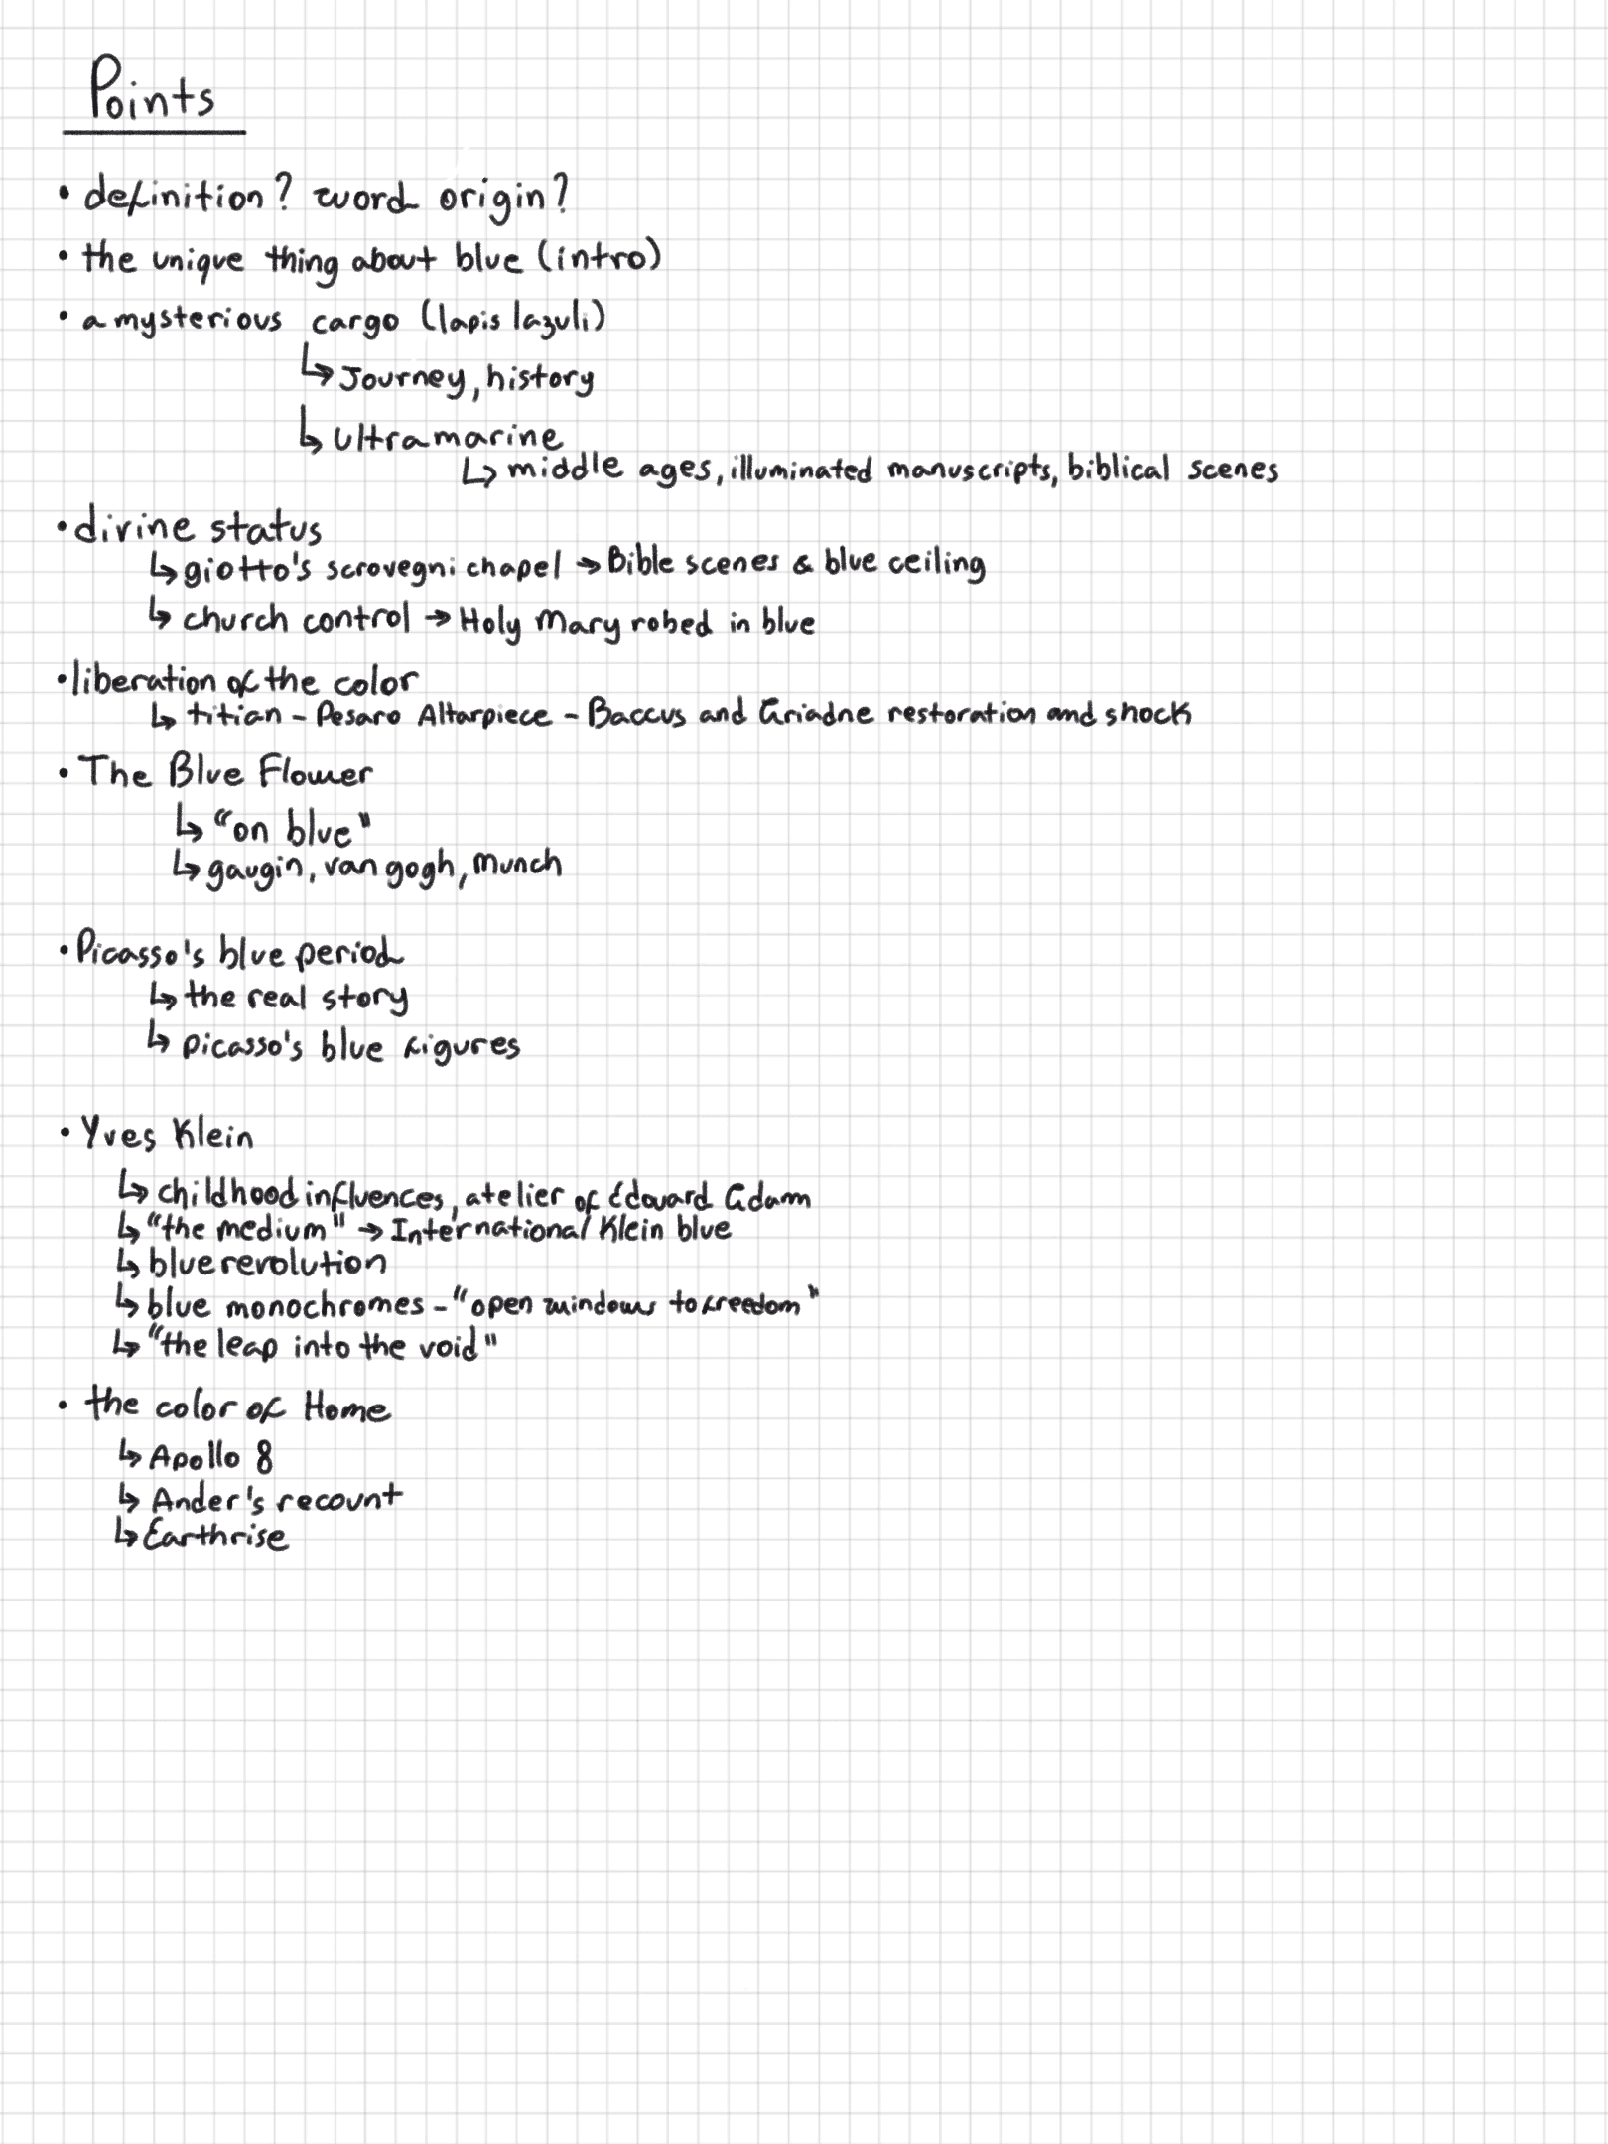 Points
• definition? word origin?
• the unique thing about blue (intro)
• a mysterious cargo (lapis lazuli)
↳ Journey, history
↳ Ultramarine
↳ middle ages, illuminated manuscripts, biblical scenes
• divine status
↳ giotto's scrovegni chapel → Bible scenes & blue ceiling
↳ church control → Holy Mary robed in blue
• liberation of the color
↳ titian - Pesaro Altarpiece - Baccus and Ariadne restoration and shock
• The Blue Flower
↳ "on blue"
↳ gaugin, van gogh, Munch
• Picasso's blue period
↳ the real story
↳ picasso's blue figures
• Yves Klein
↳ childhood influences, atelier of Édouard Adam
↳ "the medium" → International Klein blue
↳ blue revolution
↳ blue monochromes - "open windows to freedom"
↳ "the leap into the void"
• the color of Home
↳ Apollo 8
↳ Ander's recount
↳ Earthrise